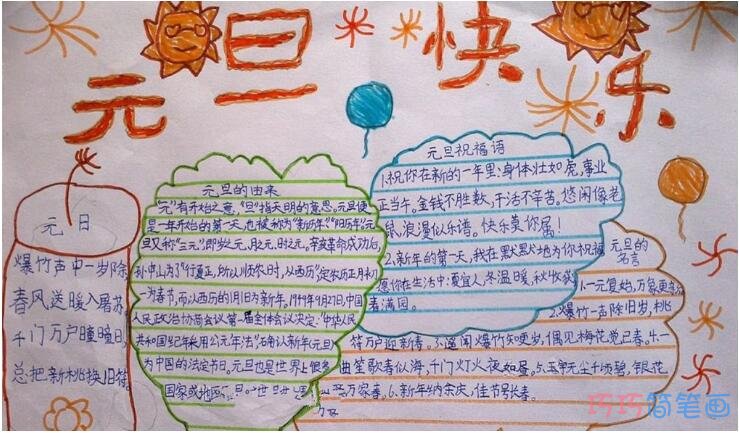 元旦快乐
元日
爆竹声中一岁除
春风送暖入屠苏
千门万户曈曈日
总把新桃换旧符。
元旦的由来
"元"有开始之意,"旦"指天明的意思。元旦便
是一年开始的第一天,也被称为"新历年""阳历年"。元
旦又称"三元",即岁之元、月之元、时之元。辛亥革命成功后,
孙中山为了"行夏正,所以顺农时,从西历",定农历正月初
一为春节,而以西历的1月1日为新年。1949年9月27日,中国
人民政治协商会议第一届全体会议决定:"中华人民
共和国纪年采用公元年法"
为中国的法定节日。元旦也是世界上很多
国家或地区
元旦祝福语
1.祝你在新的一年里:身体壮如虎,事业
正当午。金钱不胜数,干活不辛苦。悠闲像老
鼠,浪漫似乐谱。快乐莫你属!
2.新年的第一天,我在默默地为你祝福
愿你在生活中:夏宜人,冬温暖,秋收获
春满园。
元旦的
名言
1.一元复始,万象更新
2.爆竹一声除旧岁,桃
符万户迎新春。3.遥闻爆竹知更岁,偶见梅花觉已春。4.一
曲笙歌春似海,千门灯火夜如昼。5.玉宇无尘千顷碧,银花
万家春。6.新年纳余庆,佳节号长春。
巧巧简笔画